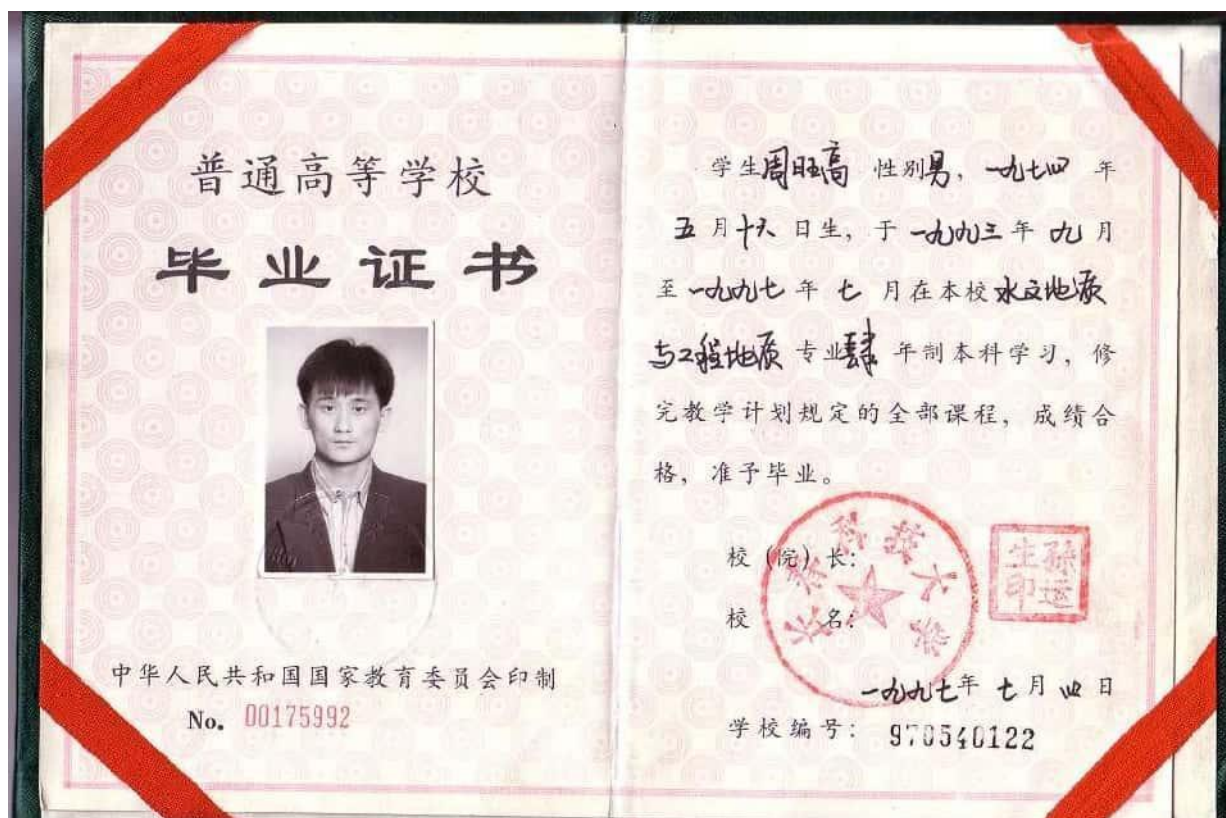 普通高等学校
毕业证书
中华人民共和国国家教育委员会印制
No. 00175992
学生周旺高 性别男，一九七四 年
五月十六日生，于一九九三年九月
至一九九七年七月在本校水文地质
与工程地质专业肆年制本科学习，修
完教学计划规定的全部课程，成绩合
格，准予毕业。
校（院）长：
校 名：
长春科技大学
孙运生印
一九九七年七月四日
学校编号：970540122